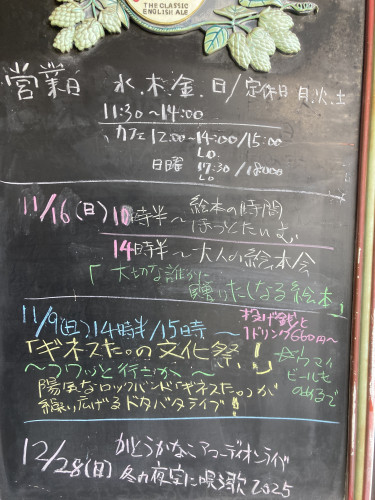 THE CLASSIC
ENGLISH ALE
営業日 水.木.金.日/定休日 月.火.土
11:30〜14:00
カフェ 12:00〜14:00/15:00
L.O.
日曜 17:30/18:00
L.O
11/16(日) 10時半〜 絵本の時間
ほっとたいむ
14時半〜大人の絵本会
「大切な誰かに
贈りたくなる絵本」
11/9(日)14時半/15時 〜 投げ銭と
1ドリンク660円〜
「ギネスた。の文化祭!」
〜フワッと行こか〜
ウマイ
ビールも
のめるで
陽気なロックバンド「ギネスた。」が
繰り広げるドタバタライブ!!
12/28(日) かとうかなこアコーディオンライブ
冬の夜空に唄う歌2025